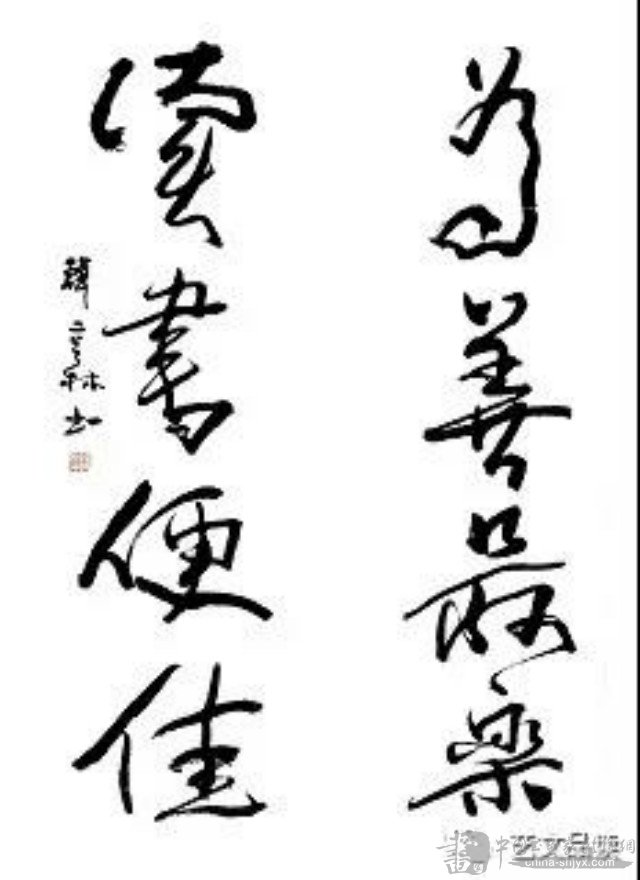 為善最樂
讀書便佳
china-shjyx.com